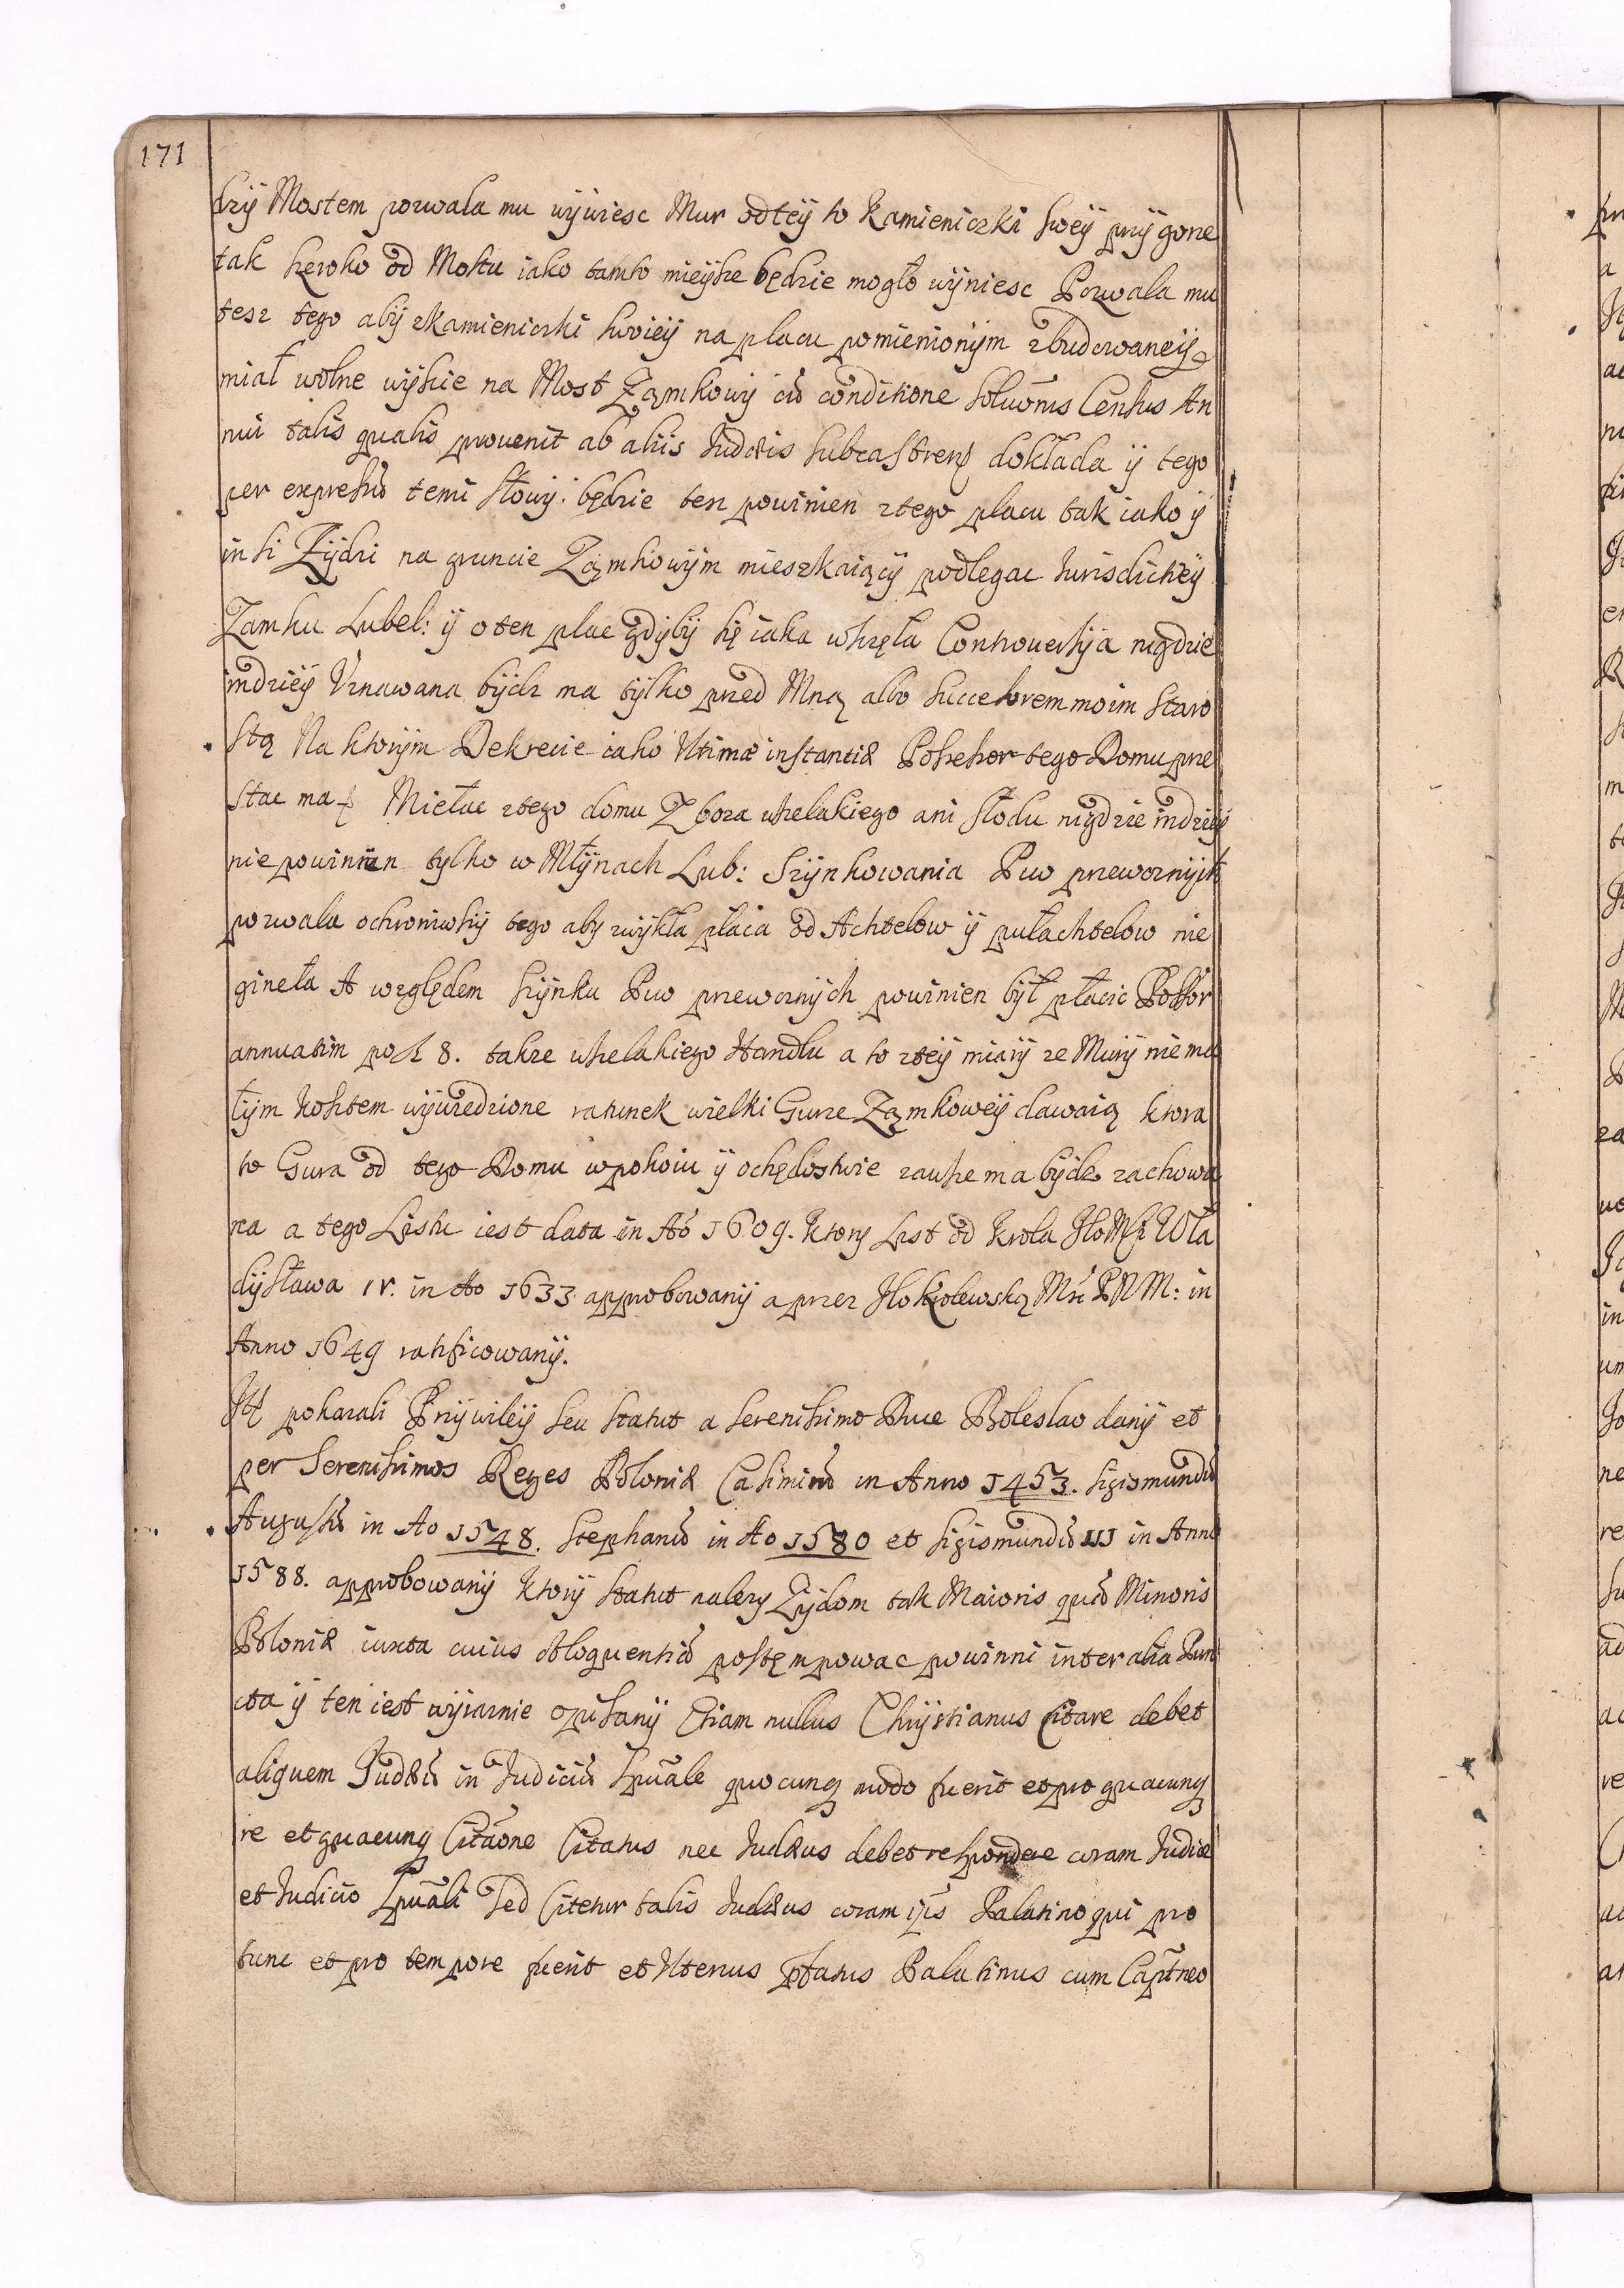 171
dzÿ Mostem pozwala mu wÿwiesc Mur od tëÿ to Kamieniczki swëÿ przÿ gorze
tak szeroko od Mostu iako tamto mieÿsce będzie mogło wÿniesc Pozwala mu
tesz tego abÿ zkamieniczki swoiëÿ na placu pomienionÿm zbudowanëÿ
miał wolne wÿscie na Most Zamkowÿ cū conditione soluōnis Census An
nui talis qualis prouenit ab aliis Iudæis subcastrens dokłada ÿ tego
per expressū temi słowÿ: będzie ten powinien ztego placu tak iako ÿ
insi Zÿdzi na gruncie Ząmkowÿm mieszkaiącÿ podlegac Iurisdictiëÿ
Zamku Lubel: ÿ o ten plac gdÿbÿ się iaka wszczęła Controuersÿa nigdzie
indziëÿ Vznawana bÿdz ma tÿlko przed Mną albo Succesorem moim Staro
stą Na ktorÿm Dekrecie iako Vltimæ instantiæ Possessor tego Domu prze
stac ma Miełac ztego domu Zboza wszelakiego ani słodu nigdzie indziëÿ
nie powinien tylko w Młÿnach Lub: Szÿnkowania Piw przewoznÿch
pozwala ochroniwszÿ tego aby zwÿkła płaca od Achtelow ÿ pułachtelow nie
gineła A względem szÿnku Piw przewoznÿch powinien bÿł płacic Possor
annuatim po zł 8. takze wszelakiego Handlu a to ztëÿ miarÿ ze Murÿ nie ma
łÿm kosztem wÿwiedzione ratunek wielki Gurze Zamkowëÿ dawaią ktora
to Gura od tego Domu w pokoiu ÿ ochędostwie zawsze ma bÿdz zachowa
na a tego Listu iest data in Aō 1609. Ktory List od Krola JKoMsci Wła
dÿsława IV. in Ao 1633 approbowanÿ a przez JKoKrolewską Mść PNM: in
Anno 1649 ratificowanÿ.
Jt pokazali Przÿwilëÿ seu Statut a serenissimo Duce Boleslao danÿ et
per Serenissimos Reges Poloniæ Casimirū in Anno 1453. Sigismundū
Augustū in Ao 1548. Stephanū in Ao 1580 et Sigismundū III in Anno
1588. approbowanÿ Ktorÿ Statut nalezy Zÿdom tak Maioris quā Minoris
Poloniæ iuxta cuius obloquentiā postępowac powinni inter alia Pun
cta ÿ ten iest wÿraznie opisanÿ Etiam nullus Chrÿstianus Citare debet
aliquem Iudæū in Iudiciū spūale quocunq modo fuerit et pro quacunq
re et quacunq Citāone Citatus nec Iudæus debet respondere coram Iudice
et Iudicio spūali Sed Citetur talis Iudæus coram ip̄s Palatino qui pro
tunc et pro tempore fuerit et Vlterius p̄fatus Palatinus cum Capt̄neo